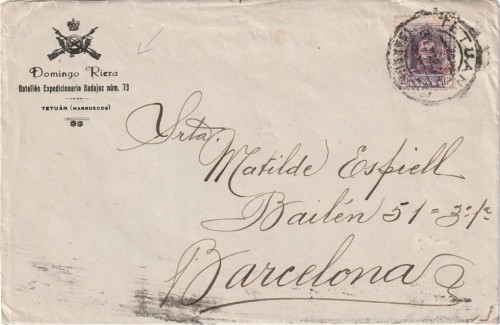 Domingo Riera
Batallón Expedicionario Badajoz núm. 73
TETUÁN (MARRUECOS)
TETUAN
Srta.
Matilde Espiell
Bailén 51=3º1ª
Barcelona